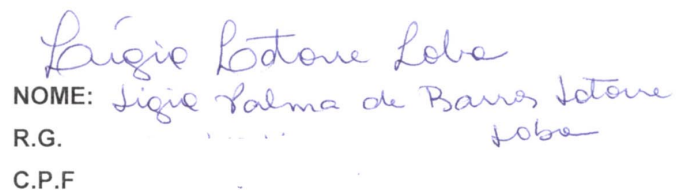 Lígia Latorre Loba
NOME: Ligia Palma de Barros Latorre
Loba
R.G.
C.P.F